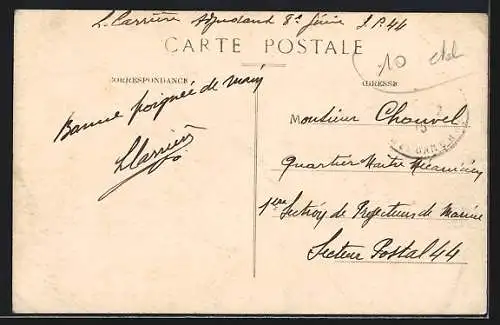 L. Carrière Adjudant 8e Génie S.P. 44
CARTE POSTALE
10
CORRESPONDANCE
ADRESSE
Bonne poignée de main
LCarrière
Monsieur Chouvel
Quartier Maître Mécanicien
1ère Section de Projecteurs de Marine
Secteur Postal 44